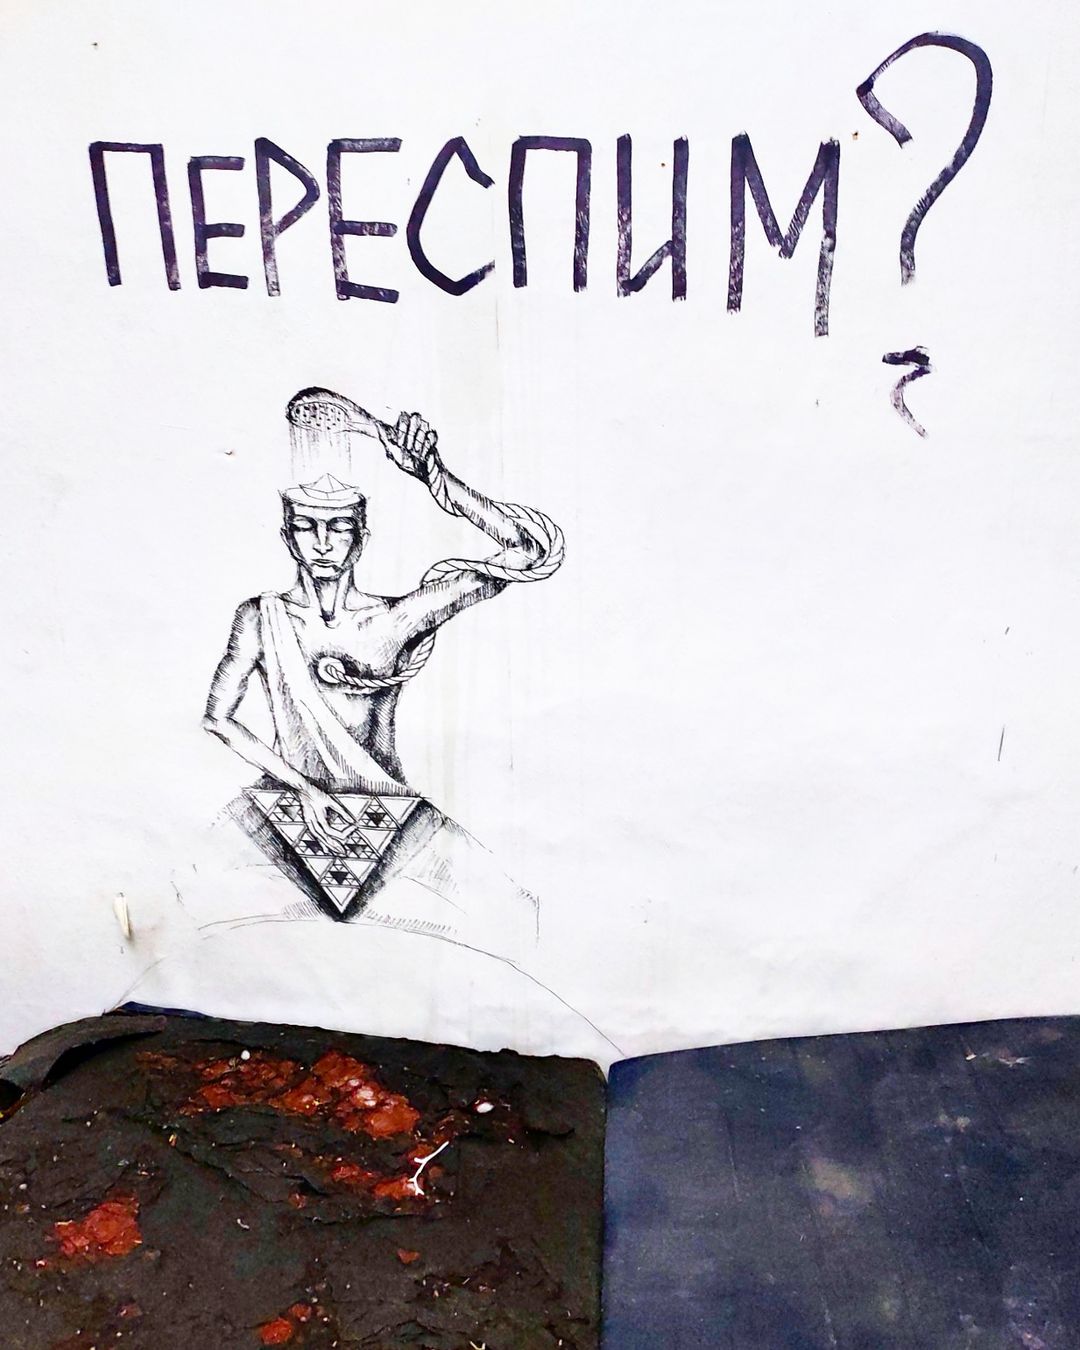 ПЕРЕСПИМ?